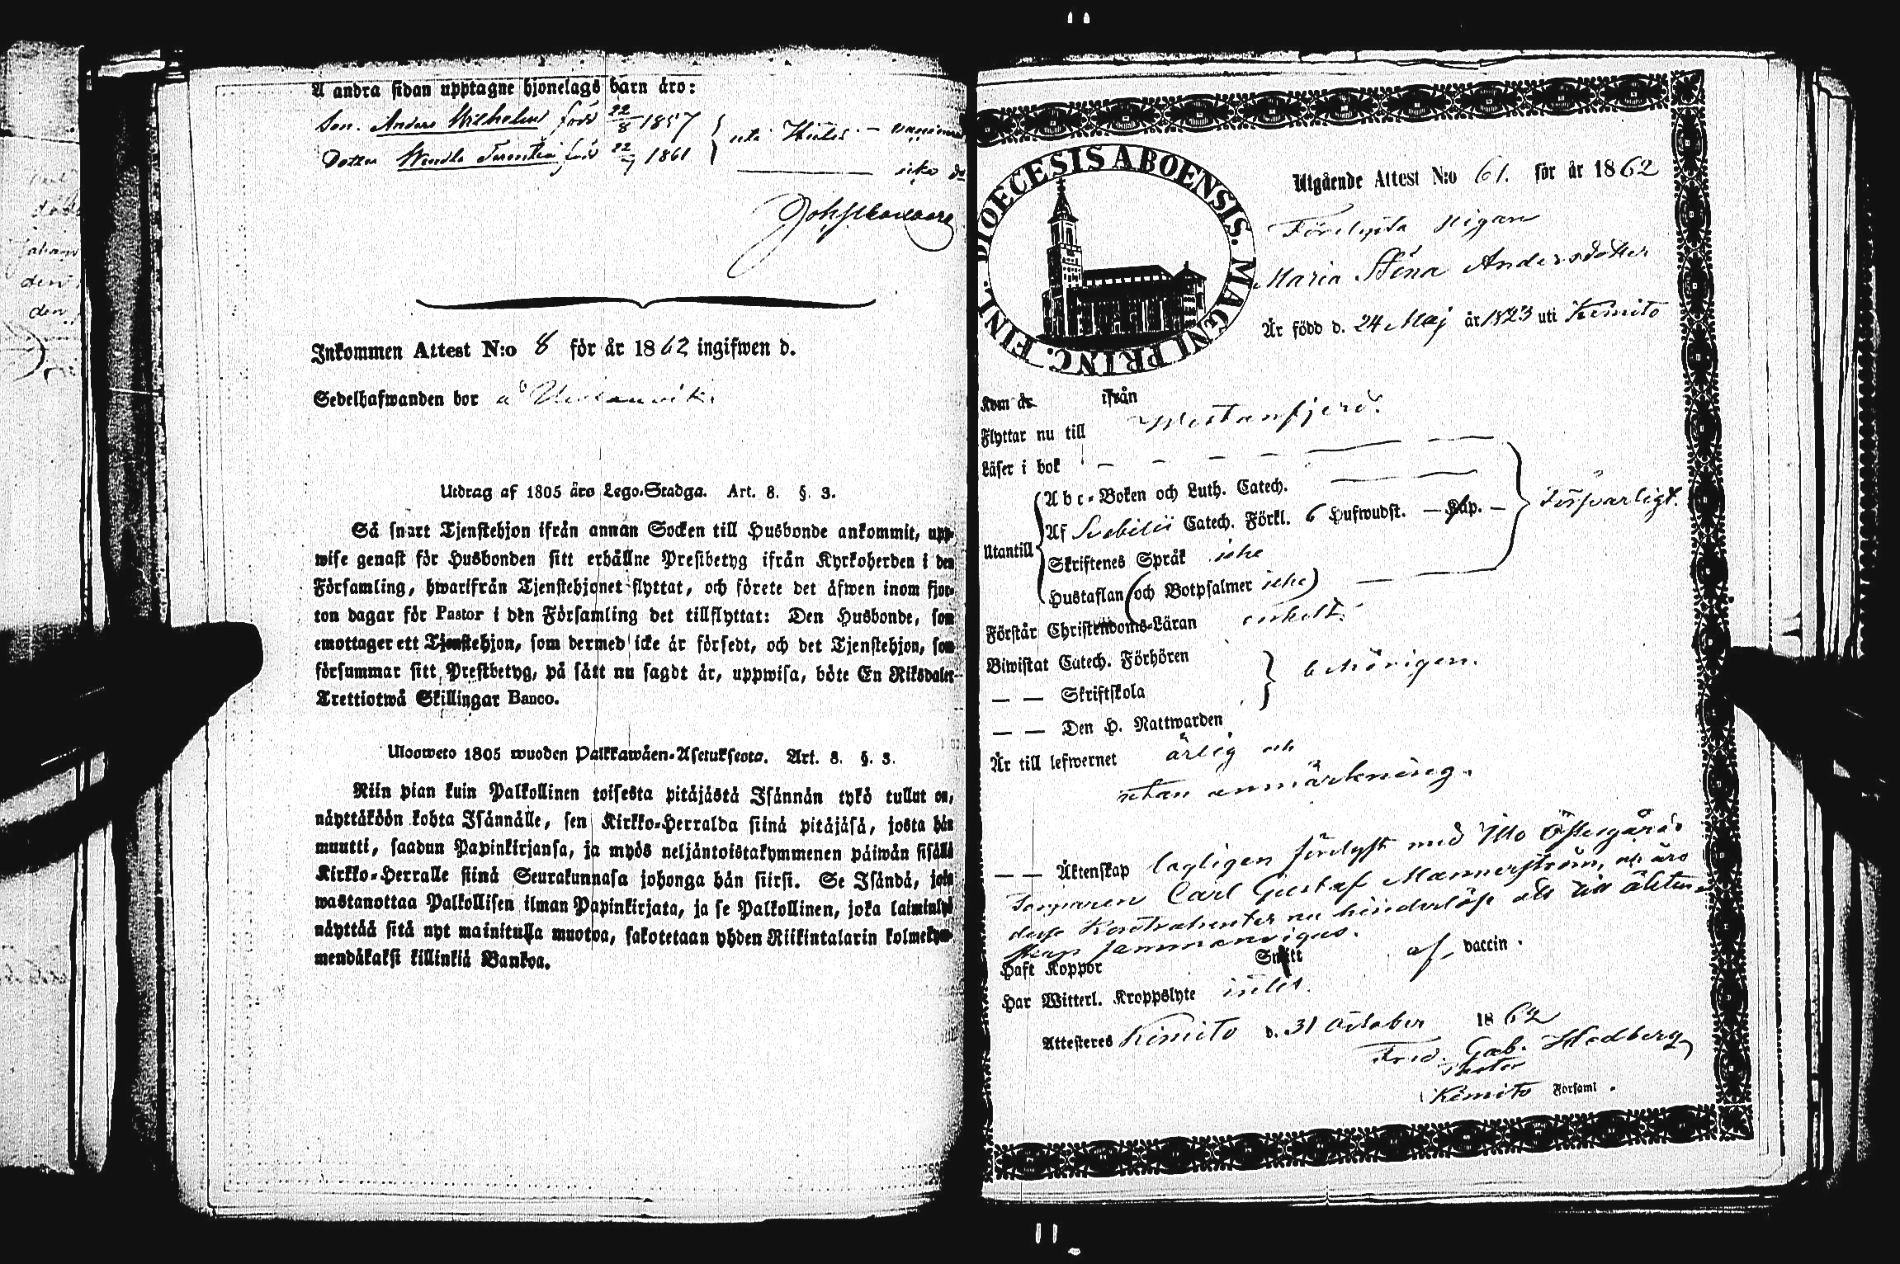 Å andra sidan upptagne hjonelags barn äro:
Son. Anders Wilhelm född 22/8 1857
Dotter Wendla född 22/7 1861
Inkommen Attest N:o 8 för år 1862 ingifwen d.
Sedelhafwanden bor å
Utdrag af 1805 års Lego-Stadga. Art. 8. §. 3.
Så snart Tjenstehjon ifrån annan Socken till Husbonde ankommit, upp-
wise genast för Husbonden sitt erhållne Prestbetyg ifrån Kyrkoherden i den
Församling, hwarifrån Tjenstehjonet flyttat, och förete det äfwen inom fjor-
ton dagar för Pastor i den Församling det tillflyttat: Den Husbonde, som
emottager ett Tjenstehjon, som dermed icke är försedt, och det Tjenstehjon, som
försummar sitt Prestbetyg, på sätt nu sagdt är, uppwisa, böte En Riksdaler
Trettiotwå Skillingar Banco.
Ulosweto 1805 wuoden Palkkawäen-Asetuksesta. Art. 8. §. 3.
Niin pian kuin Palkollinen toisesta pitäjästä Isännän tykö tullut on,
näyttäköön kohta Isännälle, sen Kirkko-Herralda siinä pitäjäsä, josta hän
muutti, saadun Papinkirjansa, ja myös neljäntoistakymmenen päiwän sisällä
Kirkko-Herralle siinä Seurakunnasa johonga hän siirsi. Se Isändä, joka
wastanottaa Palkollisen ilman Papinkirjata, ja se Palkollinen, joka laiminlyö
näyttää sitä nyt mainitulla muotoa, sakotetaan yhden Riikintalarin kolmekym-
mendäkaksi killinkiä Bankoa.
DIOECESIS ABOENSIS. MAGNI PRINC. FINL.
Utgående Attest N:o 61. för år 1862
Förelysta Pigan
Maria Stina Andersdotter
Är född d. 24 Maj år 1823 uti Kimito
Kom år ifrån
Flyttar nu till Westanfjerd.
Läser i bok
Utantill
Abc-Boken och Luth. Catech.
Af Svebelii Catech. Förkl. 6 Hufwudst. — Kap. —
Försvarligt.
Skriftenes Språk icke
Hustaflan (och Botpsalmer icke)
Förstår Christendoms-Läran enkelt.
Biwistat Catech. Förhören
— — Skriftskola
behörigen.
— — Den H. Nattwarden
Är till lefwernet ärlig och
utan anmärkning.
— — Äktenskap lagligen förelyst med Ytto Östergårds
Torparen Carl Gustaf Mannerström, och äro
desse Kontrahenter nu hinderlöse att till äkten-
skap sammanvigas.
Haft Koppor Smitt af vaccin.
Har Witterl. Kroppslyte intet.
Attesteres Kimito d. 31 October 1862
Fred. Gab. Hedberg
Pastor
Kimito Forsaml.